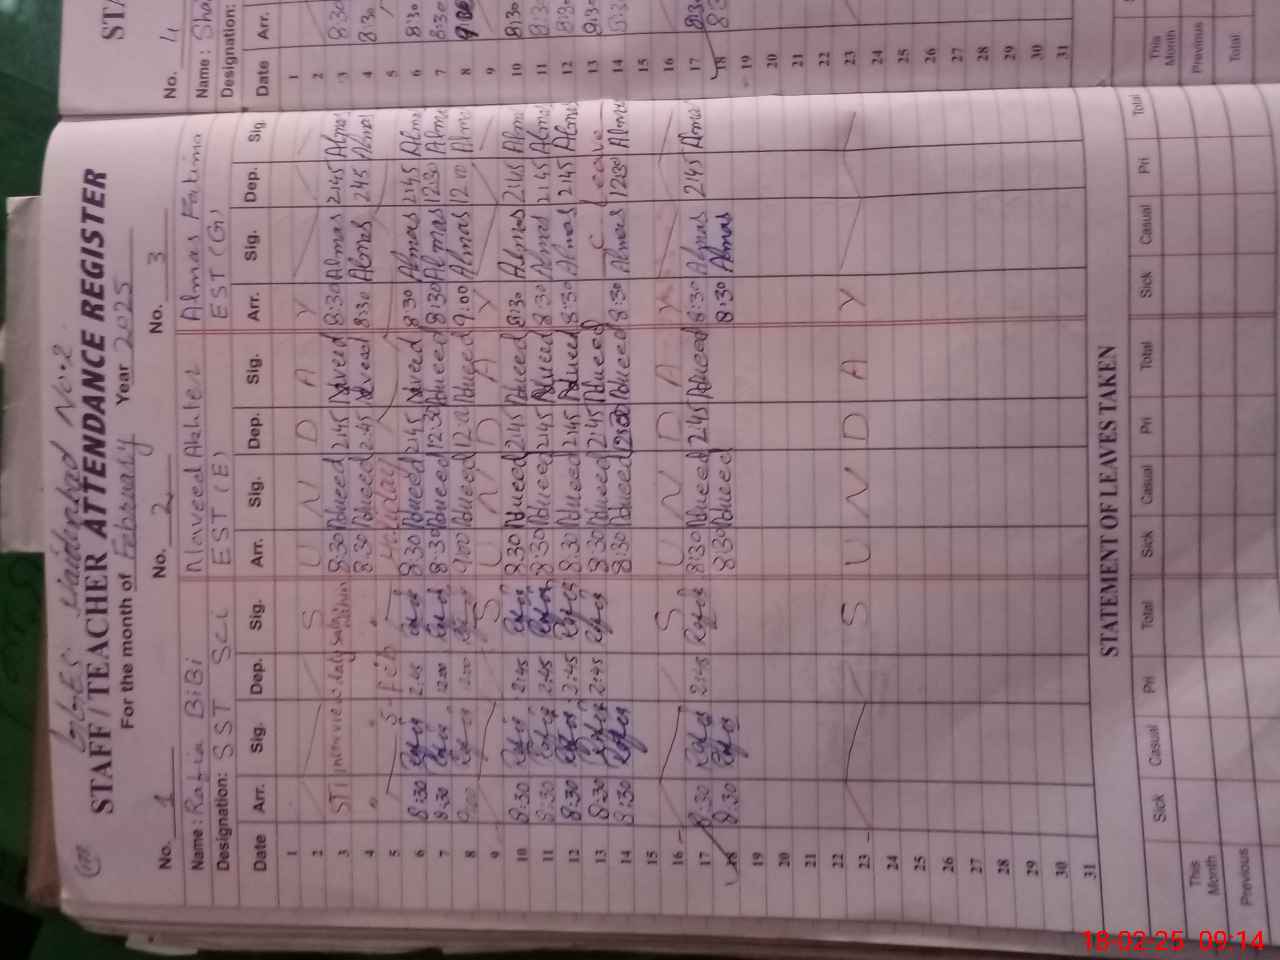 GGES
No. 2
STAFF / TEACHER ATTENDANCE REGISTER
For the month of February Year 2025
No. 1 No. 2 No. 3
Name: Rabia BiBi Naveed Akhter Almas Fatima
Designation: SST Sci EST (E) EST (G)
Date Arr. Sig. Dep. Sig. Arr. Sig. Dep. Sig. Arr. Sig. Dep. Sig.
1
2 S U N D A Y
3 8:30 Naveed 2:45 Naveed 8:30 Almas 2:45 Almas
4 8:30 Naveed 2:45 Naveed 8:30 Almas 2:45 Almas
5 5 - Feb Holiday
6 8:30 2:45 8:30 Naveed 2:45 Naveed 8:30 Almas 2:45 Almas
7 8:30 12:00 8:30 Naveed 12:30 Naveed 8:30 Almas 12:30 Almas
8 9:00 2:00 9:00 Naveed 12:00 Naveed 9:00 Almas 12:00 Almas
9 S U N D A Y
10 8:30 2:45 8:30 Naveed 2:45 Naveed 8:30 Almas 2:45 Almas
11 8:30 2:45 8:30 Naveed 2:45 Naveed 8:30 Almas 2:45 Almas
12 8:30 2:45 8:30 Naveed 2:45 Naveed 8:30 Almas 2:45 Almas
13 8:30 2:45 8:30 Naveed 2:45 Naveed C Leave
14 8:30 8:30 Naveed Naveed 8:30 Almas 12:30 Almas
15
16 S U N D A Y
17 8:30 2:45 8:30 Naveed 2:45 Naveed 8:30 Almas 2:45 Almas
18 8:30 8:30 Naveed 8:30 Almas
19
20
21
22
23 S U N D A Y
24
25
26
27
28
29
30
31
STATEMENT OF LEAVES TAKEN
Sick Casual Pri Total Sick Casual Pri Total Sick Casual Pri Total
This Month
Previous
STA
No. 4
Name: Sha
Designation:
Date Arr.
1
2
3 8:30
4 8:30
5
6 8:30
7 8:30
8 9:00
9
10 8:30
11 8:30
12 8:30
13 8:30
14 8:30
15
16
17 8:30
18
19
20
21
22
23
24
25
26
27
28
29
30
31
This Month
Previous
Total
18-02-25 09:14